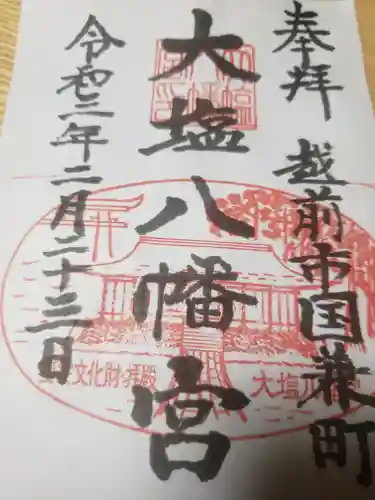 奉拝 越前市国兼町
大塩八幡宮
令和二年二月二十三日
文化財・拝殿
大塩八